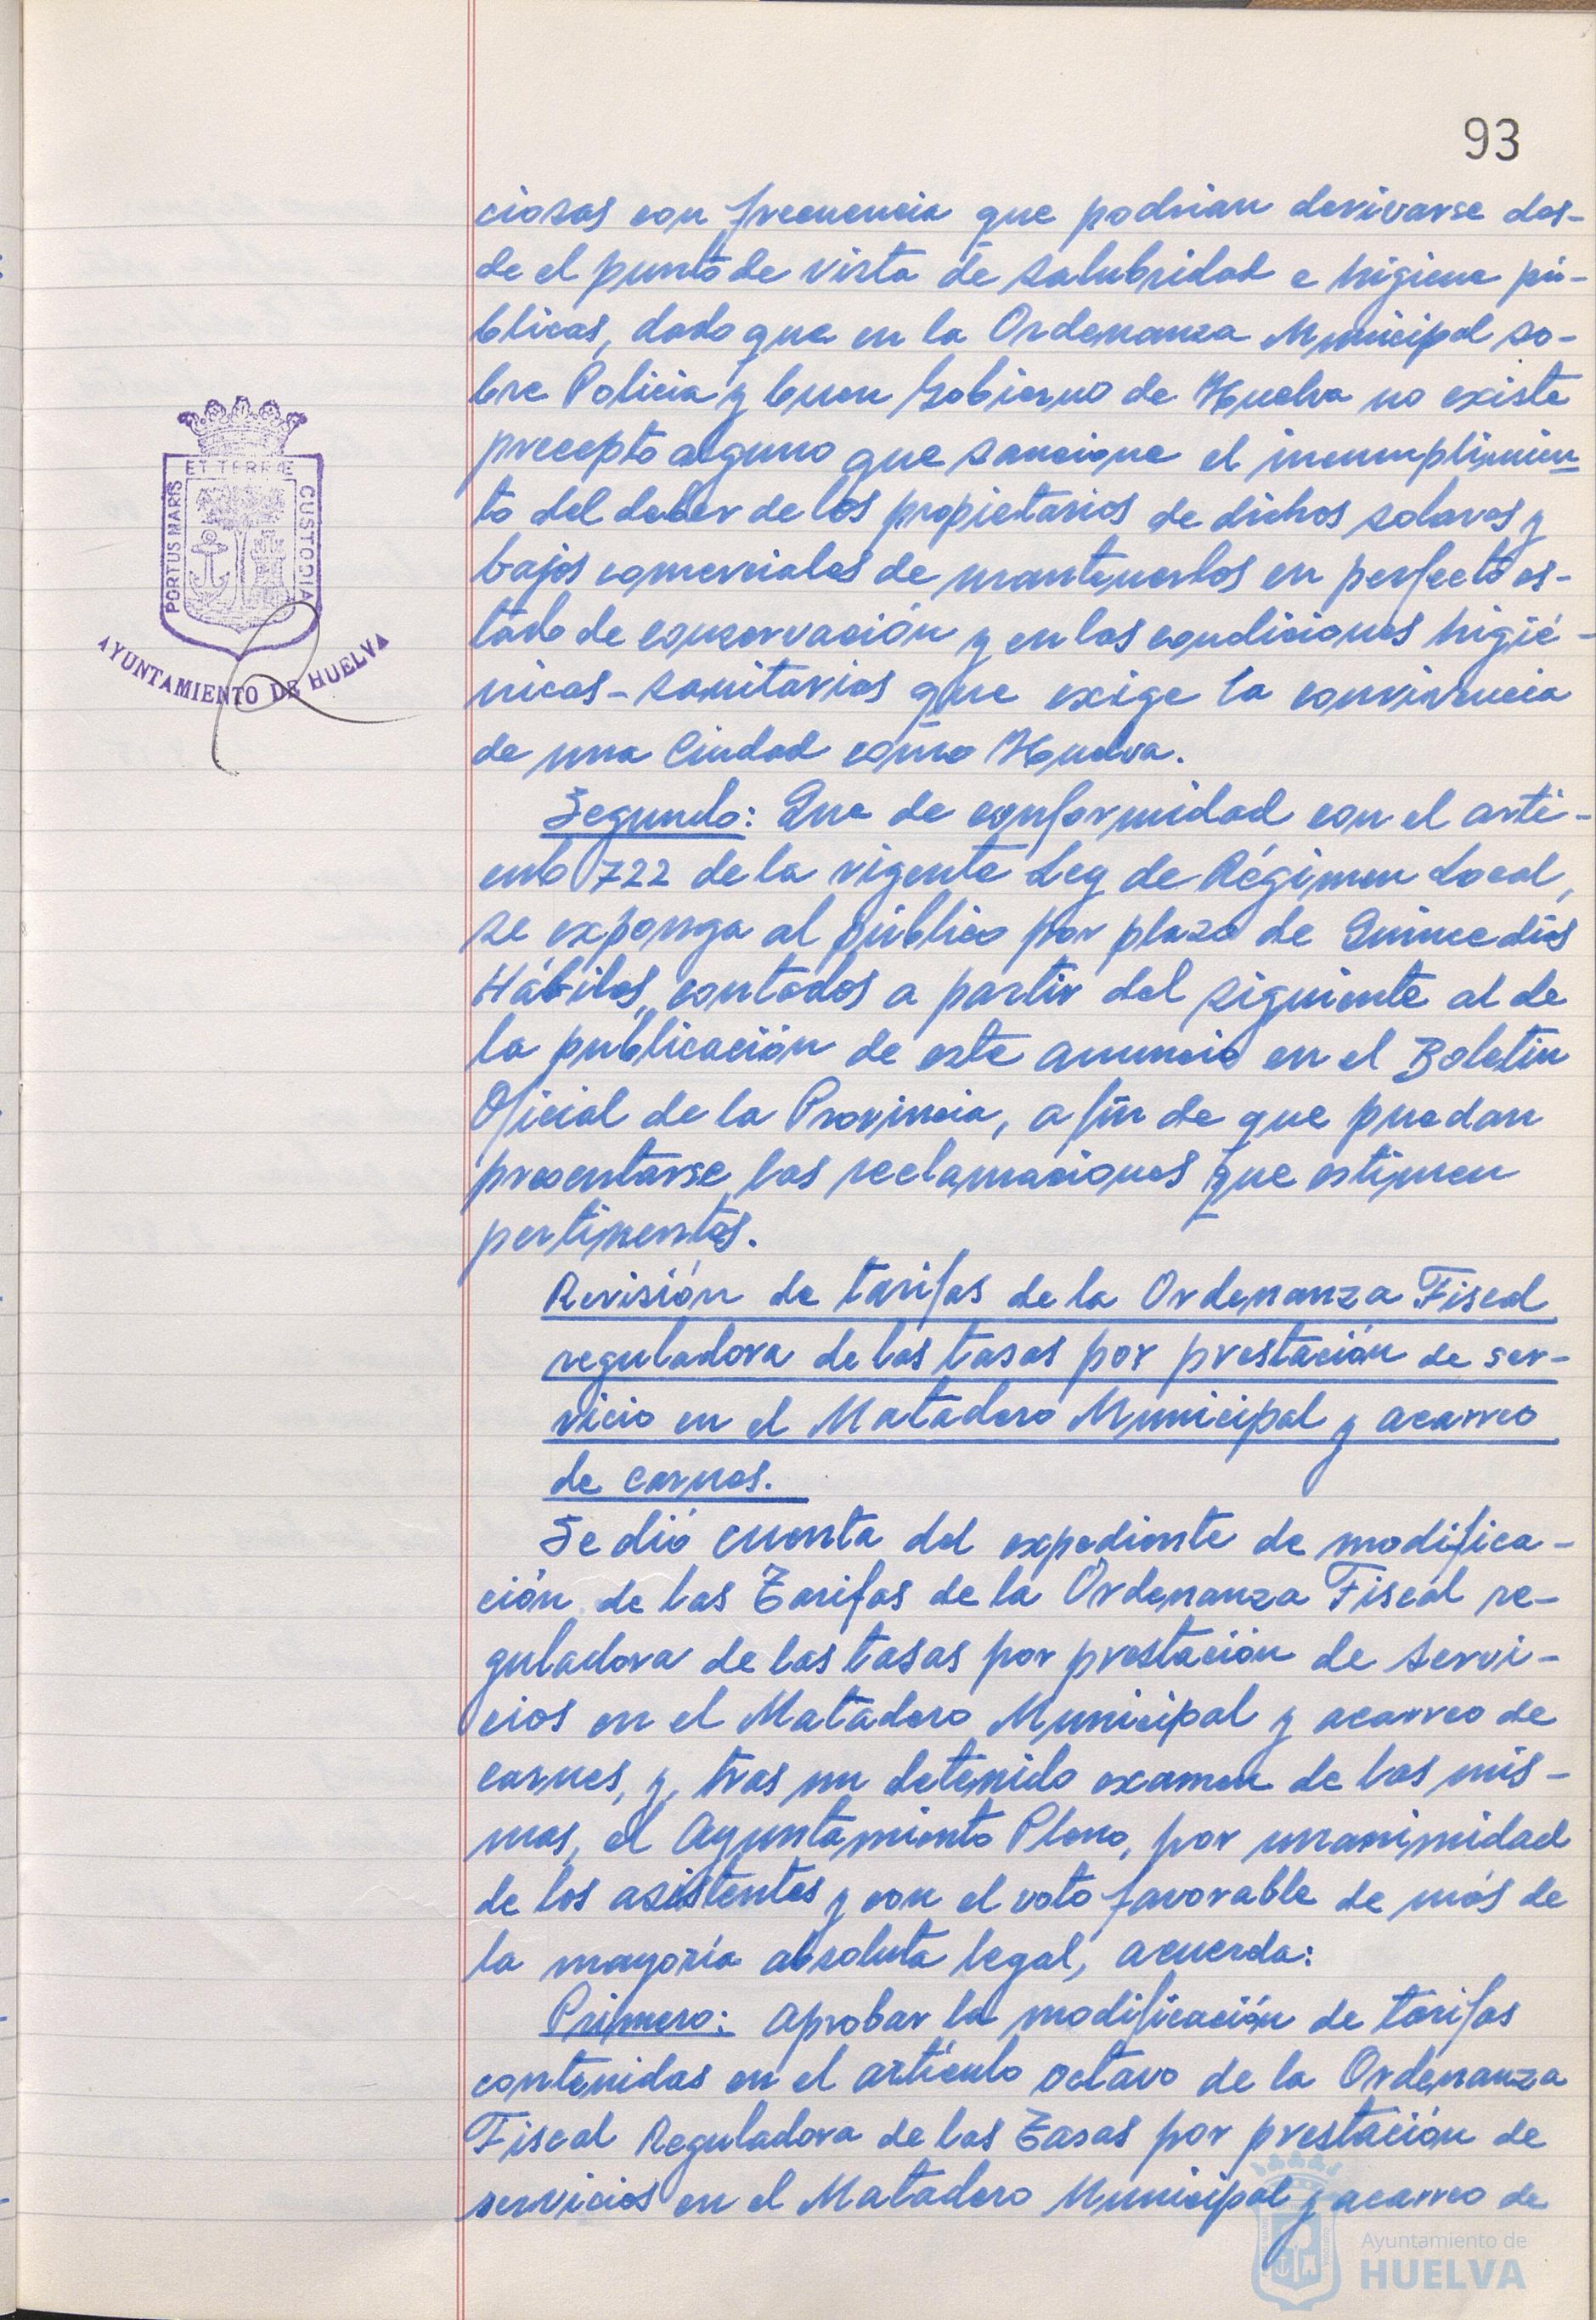 93
ciosas con frecuencia que podrian derivarse des-
de el punto de vista de salubridad e higiene pú-
blicas, dado que en la Ordenanza Municipal so-
bre Policia y buen Gobierno de Huelva no existe
precepto alguno que sancione el incumplimien
to del deber de los propietarios de dichos solares y
bajos comerciales de mantenerlos en perfecto es-
tado de conservación y en las condiciones higié-
nicas-sanitarias que exige la convivencia
de una Ciudad como Huelva.
Segundo: Que de conformidad con el arti-
culo 722 de la vigente Ley de Régimen Local,
se exponga al público por plazo de Quince dias
Hábiles, contados a partir del siguiente al de
la publicación de este anuncio en el Boletin
Oficial de la Provincia, a fin de que puedan
presentarse las reclamaciones que estimen
pertinentes.
Revisión de tarifas de la Ordenanza Fiscal
reguladora de las tasas por prestación de ser-
vicio en el Matadero Municipal y acarreo
de carnes.
Se dió cuenta del expediente de modifica-
ción de las Tarifas de la Ordenanza Fiscal re-
guladora de las tasas por prestación de servi-
cios en el Matadero Municipal y acarreo de
carnes, y, tras un detenido examen de las mis-
mas, el Ayuntamiento Pleno, por unanimidad
de los asistentes y con el voto favorable de más de
la mayoría absoluta legal, acuerda:
Primero: Aprobar la modificación de tarifas
contenidas en el artículo octavo de la Ordenanza
Fiscal Reguladora de las Tasas por prestación de
servicios en el Matadero Municipal y acarreo de
PORTUS MARIS
ET TERRÆ
CUSTODIA
AYUNTAMIENTO DE HUELVA
Ayuntamiento de
HUELVA